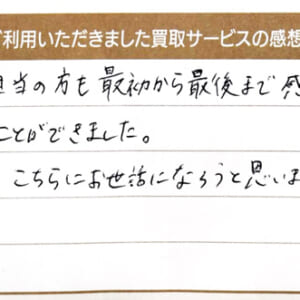 ご利用いただきました買取サービスの感想
担当の方も最初から最後まで感
ことができました。
こちらにお世話になろうと思いま